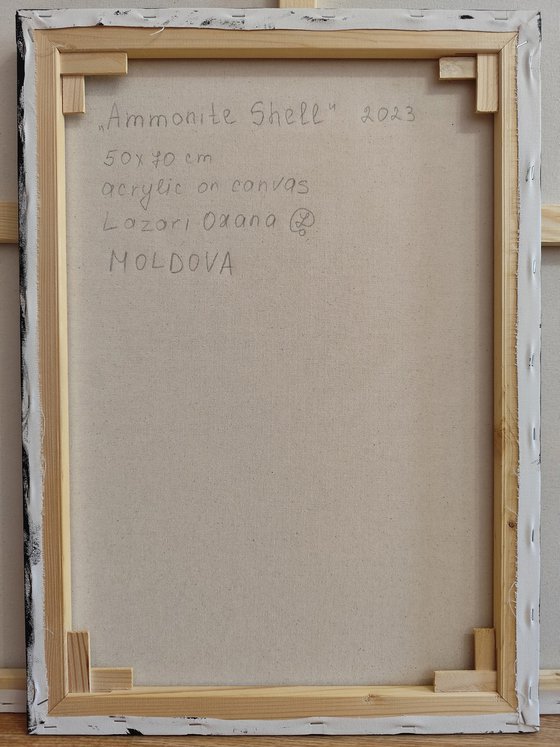 „Ammonite Shell" 2023
50x70 cm
acrylic on canvas
Lazari Oxana
MOLDOVA